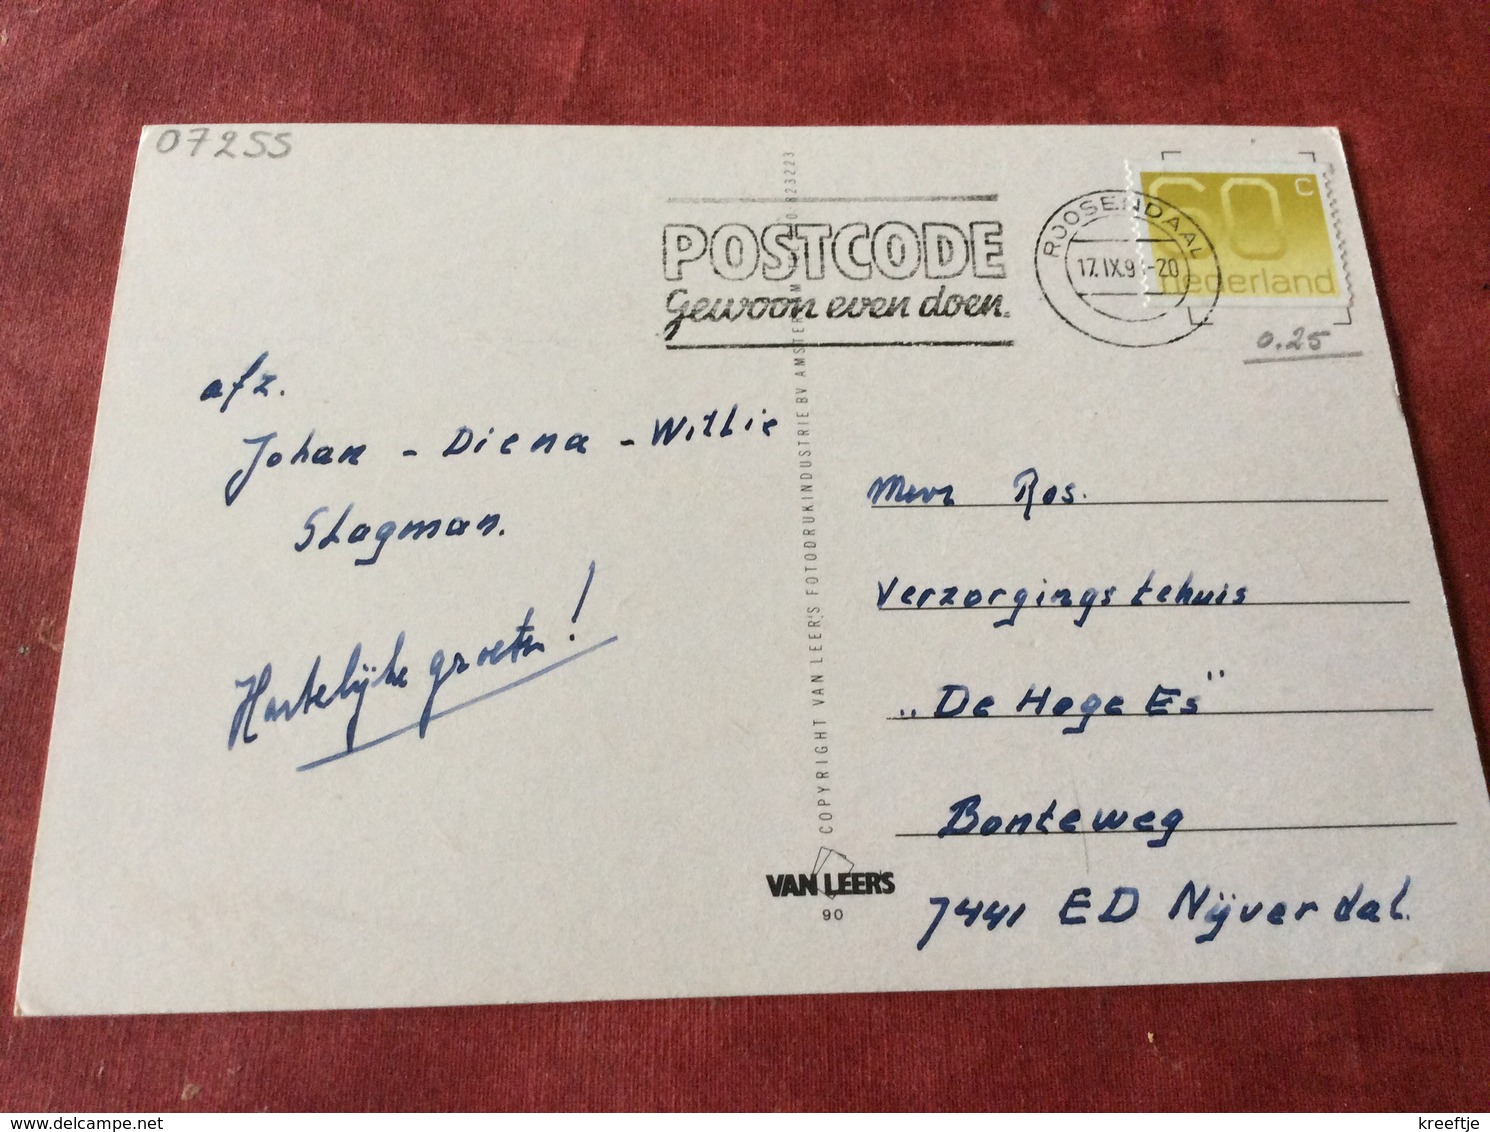 07255
POSTCODE
Gewoon even doen.
ROOSENDAAL
17.IX.9 -20
60 C
nederland
0.25
afz.
Johan - Diena - Willie
Slagman.
Hartelijke groeten!
COPYRIGHT VAN LEER'S FOTODRUKINDUSTRIE BV AMSTERDAM
VAN LEER'S
90
Mevr Ros.
Verzorgingstehuis
„De Hoge Es"
Bonteweg
7441 ED Nijverdal.
kreeftje